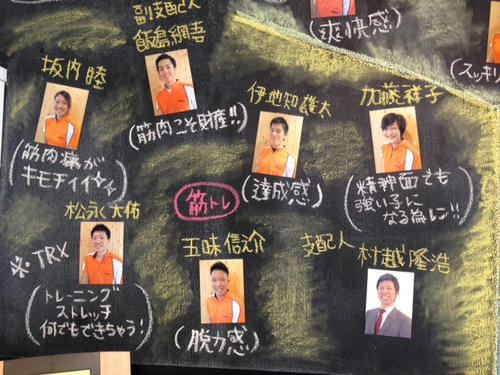 副支配人
飯島綱吾
(筋肉こそ財産!!)
(爽快感)
(スッキリ
坂内 睦
(筋肉痛が
キモチイイ☆)
伊地知雄太
(達成感)
加藤祥子
(精神面でも
強い子に
なる為レン!!)
筋トレ
松永大佑
※TRX
(トレーニング
ストレッチ
何でもできちゃう!)
五味信介
(脱力感)
支配人
村越隆浩